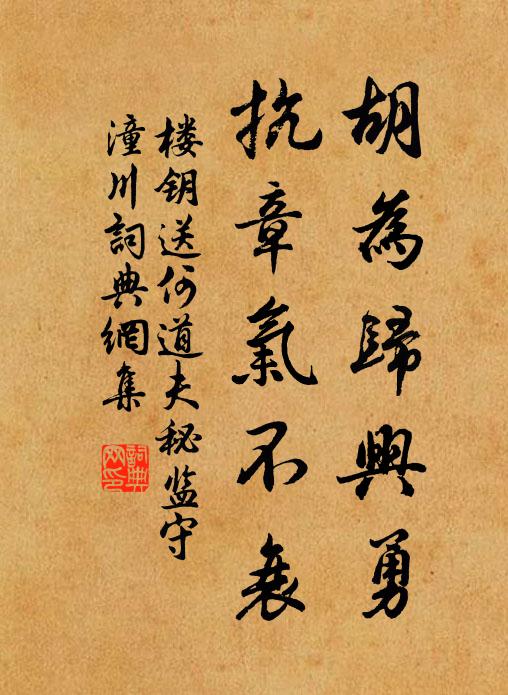 胡為歸興勇
抗章氣不衰
楼钥送何道夫秘监守
潼川詞典網集
詞典
网印